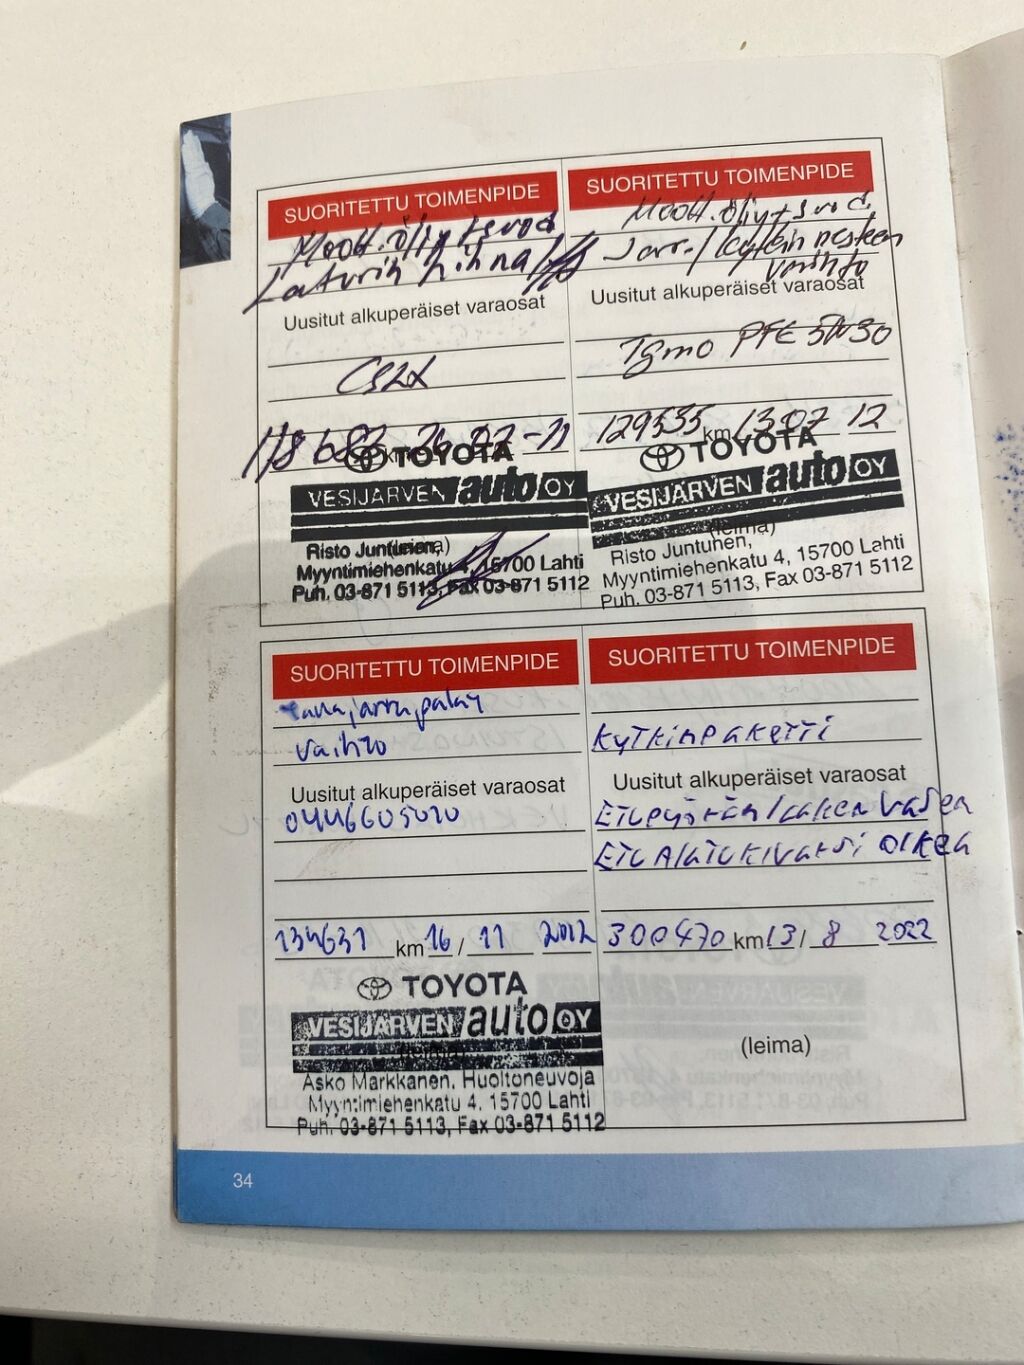 SUORITETTU TOIMENPIDE
Moott.öljy+suod
Laturin hihna
Uusitut alkuperäiset varaosat
118682 km -11
TOYOTA
VESIJÄRVEN auto OY
(leima)
Risto Juntunen,
Myyntimiehenkatu 4, 15700 Lahti
Puh. 03-871 5113, Fax 03-871 5112
SUORITETTU TOIMENPIDE
Moott.öljy+suod.
Jarr./kytkin nesteen
vaihto
Uusitut alkuperäiset varaosat
PFE 5W30
129535 km 13 07 12
TOYOTA
VESIJÄRVEN auto OY
(leima)
Risto Juntunen,
Myyntimiehenkatu 4, 15700 Lahti
Puh. 03-871 5113, Fax 03-871 5112
SUORITETTU TOIMENPIDE
vaihto
Uusitut alkuperäiset varaosat
0446605020
134631 km 16 / 11 2012
TOYOTA
VESIJÄRVEN auto OY
(leima)
Asko Markkanen, Huoltoneuvoja
Myyntimiehenkatu 4, 15700 Lahti
Puh. 03-871 5113, Fax 03-871 5112
SUORITETTU TOIMENPIDE
kytkinpaketti
Uusitut alkuperäiset varaosat
Etupyörän laakeri vasen
Etu alatukivarsi oikea
300470 km 13 / 8 2022
(leima)
34